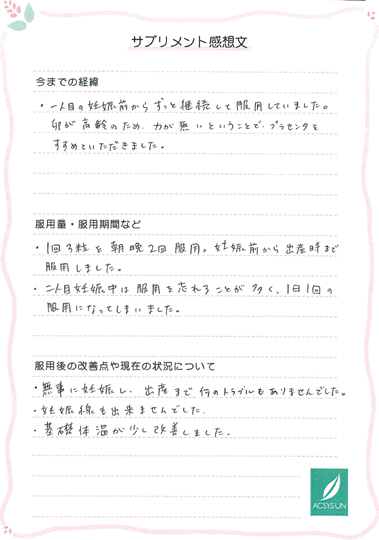 サプリメント感想文
今までの経緯
・一人目の妊娠前からずっと継続して服用していました。
卵が高齢のため、力が無いということで、プラセンタを
すすめていただきました。
服用量・服用期間など
・1回3粒を朝晩2回服用。妊娠前から出産時まで
服用しました。
・二人目妊娠中は服用を忘れることが多く、1日1回の
服用になってしまいました。
服用後の改善点や現在の状況について
・無事に妊娠し、出産まで何のトラブルもありませんでした。
・妊娠線も出来ませんでした。
・基礎体温が少し改善しました。
ACSYSUN